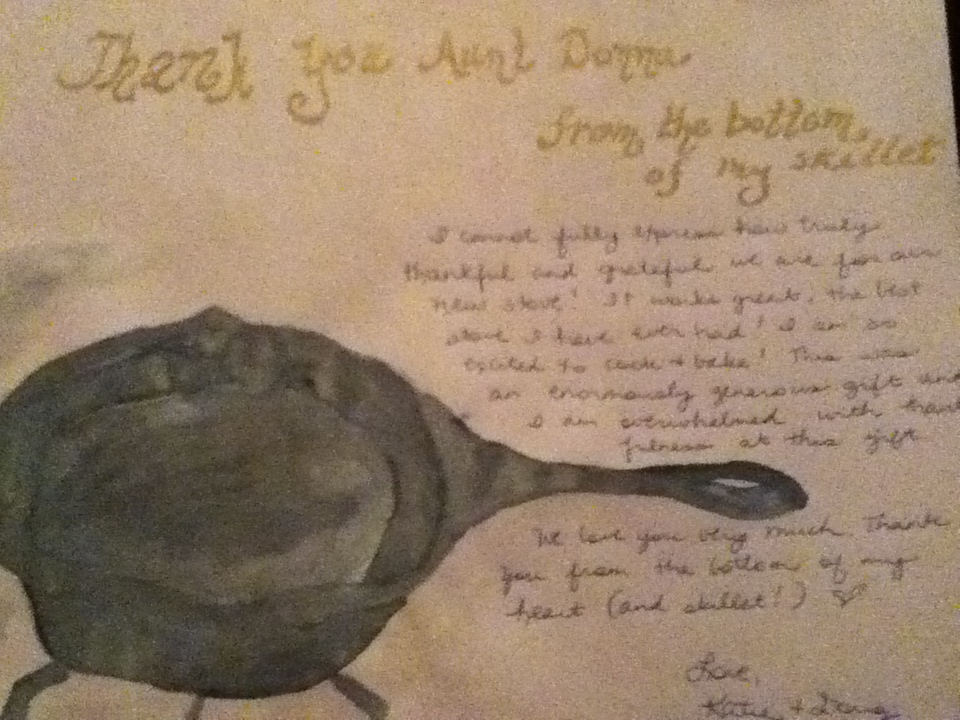 Thank you Aunt Donna
from the bottom
of my skillet
I cannot fully express how truly
thankful and grateful we are for our
new stove! It works great, the best
stove I have ever had! I am so
excited to cook + bake! This was
an enormously generous gift and
I am overwhelmed with thank
fulness at this gift
We love you very much. Thank
you from the bottom of my
heart (and skillet!) ♡
Love,
Katie +